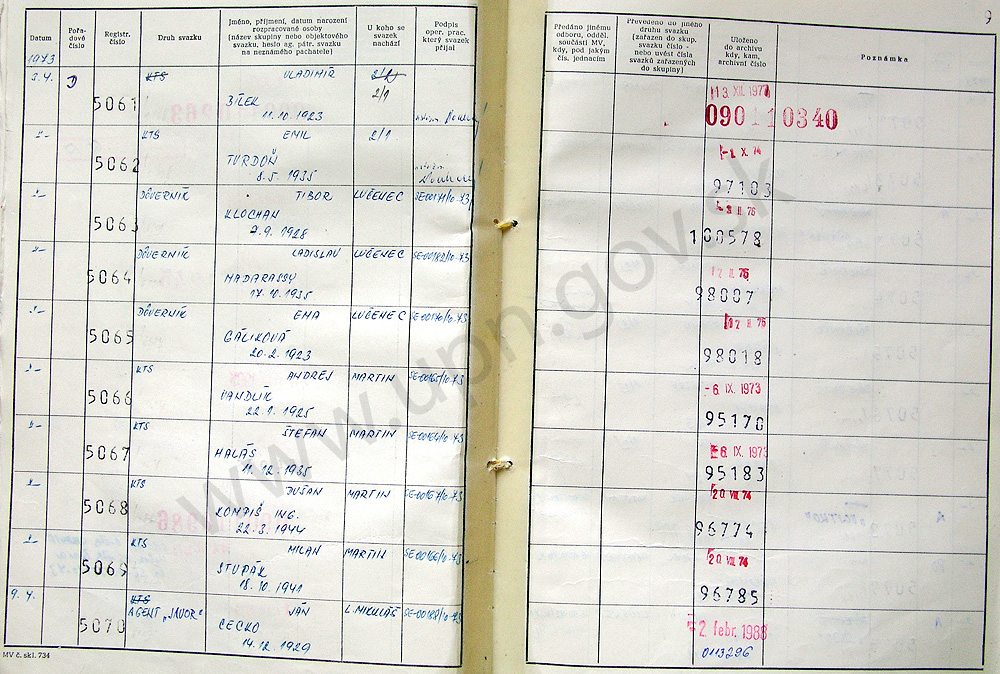 9
Datum
Pořadové číslo
Registr. číslo
Druh svazku
Jméno, příjmení, datum narození rozpracované osoby (název skupiny nebo objektového svazku, heslo ag. pátr. svazku na neznámého pachatele)
U koho se svazek nachází
Podpis oper. prac. který svazek přijal
Předáno jinému odboru, odděl. součásti MV, kdy, pod jakým čís. jednacím
Převedeno do jiného druhu svazku (zařazen do skup. svazku číslo - nebo uvést čísla svazků zařazených do skupiny)
Uloženo do archivu kdy, kam, archivní číslo
Poznámka
1973
3.4. 5061 KTS VLADIMÍR 2/1
BÍLEK
11.10.1923
13. XII. 1977
090110340
-"- 5062 KTS EMIL 2/1
TVRDOŇ
8.5.1935
-2. X. 74
97103
-"- 5063 DÔVERNÍK TIBOR LUČENEC
KLOCHAN
7.9.1928
II. 76
100578
-"- 5064 DÔVERNÍK LADISLAV LUČENEC
MADARASSY
17.10.1935
II. 75
98007
-"- 5065 DÔVERNÍK EMA LUČENEC
GÁLIKOVÁ
20.2.1923
98018
-"- 5066 KTS ANDREJ MARTIN SE-00165/10-73
VANDLÍK
22.1.1925
-6. IX. 1973
95170
-"- 5067 KTS ŠTEFAN MARTIN SE-00164/10-73
HALÁŠ
11.12.1935
-6. IX. 1973
95183
-"- 5068 KTS DUŠAN MARTIN SE-00167/10-73
KOMPIŠ ING.
22.3.1944
20. VIII. 74
96774
-"- 5069 KTS MILAN MARTIN SE-00166/10-73
STUPÁK
18.10.1941
20. VIII. 74
96785
9.4. 5070 KTS
AGENT „JAVOR" JÁN L. MIKULÁŠ
CECKO
14.12.1929
-2. febr. 1988
0113296
MV č. skl. 734
www.upn.gov.sk